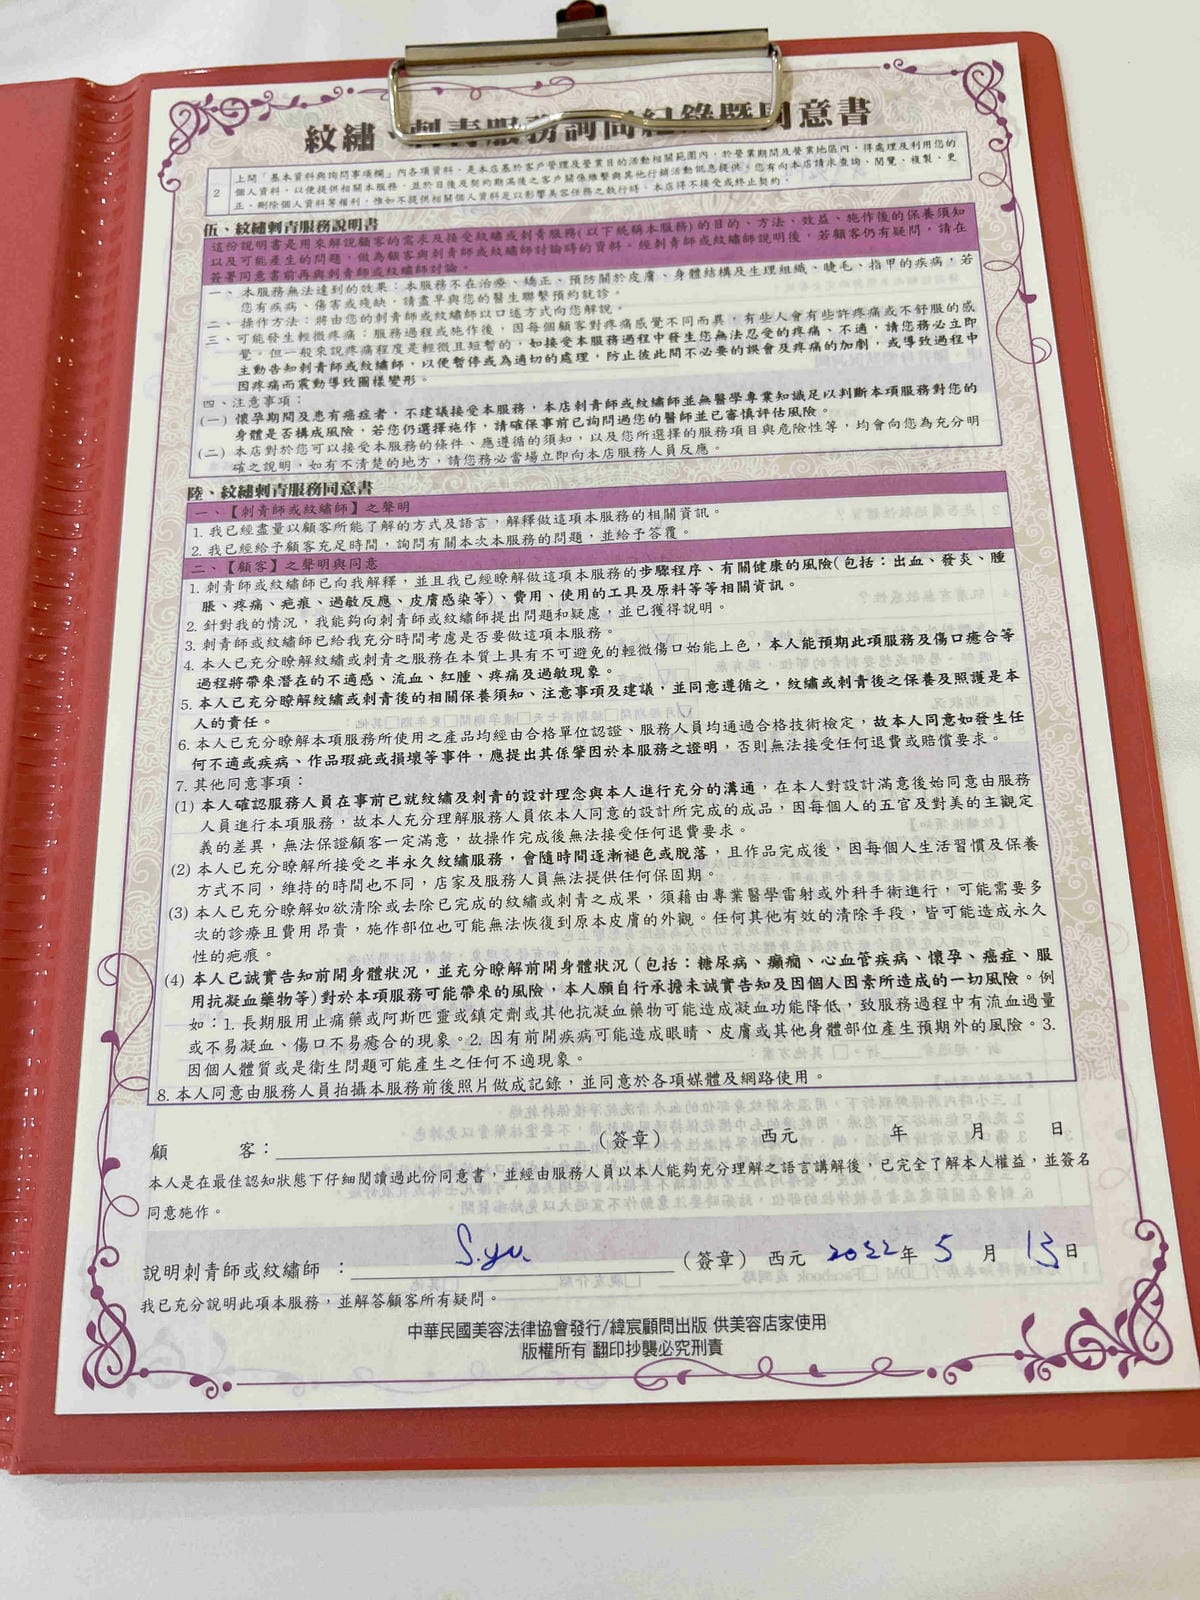 紋繡、刺青服務詢問紀錄暨同意書
上開「基本資料與詢問事項欄」內各項資料，是本店基於客戶管理及營業目的活動相關範圍內，於營業期間及營業地區內，得處理及利用您的
2 個人資料，以便提供相關本服務，並於日後及契約期滿後之客戶關係維繫與其他行銷活動訊息提供。您有向本店請求查詢、閱覽、複製、更
正、刪除個人資料等權利，惟如不提供相關個人資料足以影響美容任務之執行時，本店得不接受或終止契約。
伍、紋繡刺青服務說明書
這份說明書是用來解說顧客的需求及接受紋繡或刺青服務(以下統稱本服務)的目的、方法、效益、施作後的保養須知
以及可能產生的問題，做為顧客與刺青師或紋繡師討論時的資料。經刺青師或紋繡師說明後，若顧客仍有疑問，請在
簽署同意書前再與刺青師或紋繡師討論。
一、本服務無法達到的效果：本服務不在治療、矯正、預防關於皮膚、身體結構及生理組織、睫毛、指甲的疾病，若
您有疾病、傷害或殘缺，請盡早與您的醫生聯繫預約就診。
二、操作方法：將由您的刺青師或紋繡師以口述方式向您解說。
三、可能發生輕微疼痛：服務過程或施作後，因每個顧客對疼痛感覺不同而異，有些人會有些許疼痛或不舒服的感
覺。但一般來說疼痛程度是輕微且短暫的，如接受本服務過程中發生您無法忍受的疼痛、不適，請您務必立即
主動告知刺青師或紋繡師，以便暫停或為適切的處理，防止彼此間不必要的誤會及疼痛的加劇，或導致過程中
因疼痛而震動導致圖樣變形。
四、注意事項：
(一) 懷孕期間及患有癌症者，不建議接受本服務，本店刺青師或紋繡師並無醫學專業知識足以判斷本項服務對您的
身體是否構成風險，若您仍選擇施作，請確保事前已詢問過您的醫師並已審慎評估風險。
(二) 本店對於您可以接受本服務的條件、應遵循的須知，以及您所選擇的服務項目與危險性等，均會向您為充分明
確之說明，如有不清楚的地方，請您務必當場立即向本店服務人員反應。
陸、紋繡刺青服務同意書
一、【刺青師或紋繡師】之聲明
1. 我已經盡量以顧客所能了解的方式及語言，解釋做這項本服務的相關資訊。
2. 我已經給予顧客充足時間，詢問有關本次本服務的問題，並給予答覆。
二、【顧客】之聲明與同意
1. 刺青師或紋繡師已向我解釋，並且我已經瞭解做這項本服務的步驟程序、有關健康的風險(包括：出血、發炎、腫
脹、疼痛、疤痕、過敏反應、皮膚感染等)、費用、使用的工具及原料等等相關資訊。
2. 針對我的情況，我能夠向刺青師或紋繡師提出問題和疑慮，並已獲得說明。
3. 刺青師或紋繡師已給我充分時間考慮是否要做這項本服務。
4. 本人已充分瞭解紋繡或刺青之服務在本質上具有不可避免的輕微傷口始能上色，本人能預期此項服務及傷口癒合等
過程將帶來潛在的不適感、流血、紅腫、疼痛及過敏現象。
5. 本人已充分瞭解紋繡或刺青後的相關保養須知、注意事項及建議，並同意遵循之，紋繡或刺青後之保養及照護是本
人的責任。
6. 本人已充分瞭解本項服務所使用之產品均經由合格單位認證、服務人員均通過合格技術檢定，故本人同意如發生任
何不適或疾病、作品瑕疵或損壞等事件，應提出其係肇因於本服務之證明，否則無法接受任何退費或賠償要求。
7. 其他同意事項：
(1) 本人確認服務人員在事前已就紋繡及刺青的設計理念與本人進行充分的溝通，在本人對設計滿意後始同意由服務
人員進行本項服務，故本人充分理解服務人員依本人同意的設計所完成的成品，因每個人的五官及對美的主觀定
義的差異，無法保證顧客一定滿意，故操作完成後無法接受任何退費要求。
(2) 本人已充分瞭解所接受之半永久紋繡服務，會隨時間逐漸褪色或脫落，且作品完成後，因每個人生活習慣及保養
方式不同，維持的時間也不同，店家及服務人員無法提供任何保固期。
(3) 本人已充分瞭解如欲清除或去除已完成的紋繡或刺青之成果，須藉由專業醫學雷射或外科手術進行，可能需要多
次的診療且費用昂貴，施作部位也可能無法恢復到原本皮膚的外觀。任何其他有效的清除手段，皆可能造成永久
性的疤痕。
(4) 本人已誠實告知前開身體狀況，並充分瞭解前開身體狀況（包括：糖尿病、癲癇、心血管疾病、懷孕、癌症、服
用抗凝血藥物等)對於本項服務可能帶來的風險，本人願自行承擔未誠實告知及因個人因素所造成的一切風險。例
如：1. 長期服用止痛藥或阿斯匹靈或鎮定劑或其他抗凝血藥物可能造成凝血功能降低，致服務過程中有流血過量
或不易凝血、傷口不易癒合的現象。2. 因有前開疾病可能造成眼睛、皮膚或其他身體部位產生預期外的風險。3.
因個人體質或是衛生問題可能產生之任何不適現象。
8. 本人同意由服務人員拍攝本服務前後照片做成記錄，並同意於各項媒體及網路使用。
顧 客：（簽章） 西元 年 月 日
本人是在最佳認知狀態下仔細閱讀過此份同意書，並經由服務人員以本人能夠充分理解之語言講解後，已完全了解本人權益，並簽名
同意施作。
說明刺青師或紋繡師：S.yu.（簽章） 西元 2022年 5 月 13日
我已充分說明此項本服務，並解答顧客所有疑問。
中華民國美容法律協會發行/緯宸顧問出版 供美容店家使用
版權所有 翻印抄襲必究刑責